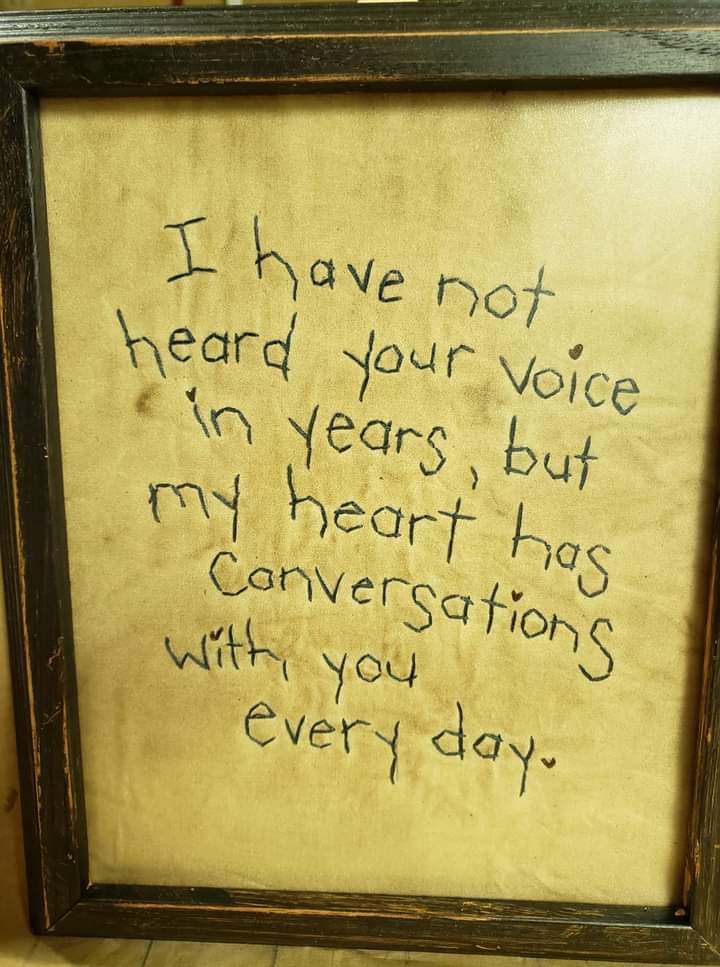 I have not
heard your voice
in years, but
my heart has
Conversations
with you
every day.